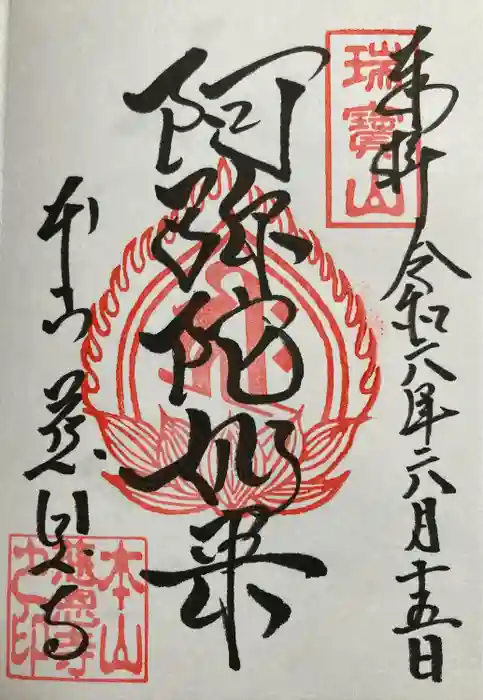 奉拝
令和六年六月十五日
瑞寶山
阿弥陀如来
本山慈恩寺
本山
慈恩寺
之印